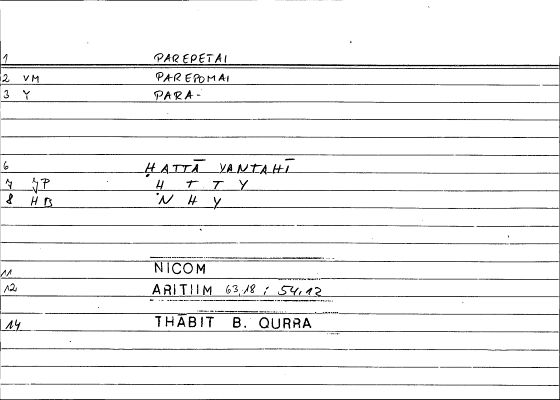 1 PAREPETAI
2 VM PAREPOMAI
3 Y PARA-
6 ḤATTĀ YANTAHĪ
7 JP Ḥ T T Y
8 HB N H Y
11 NICOM
12 ARITIIM 63,18 ; 54,12
14 THĀBIT B. QURRA